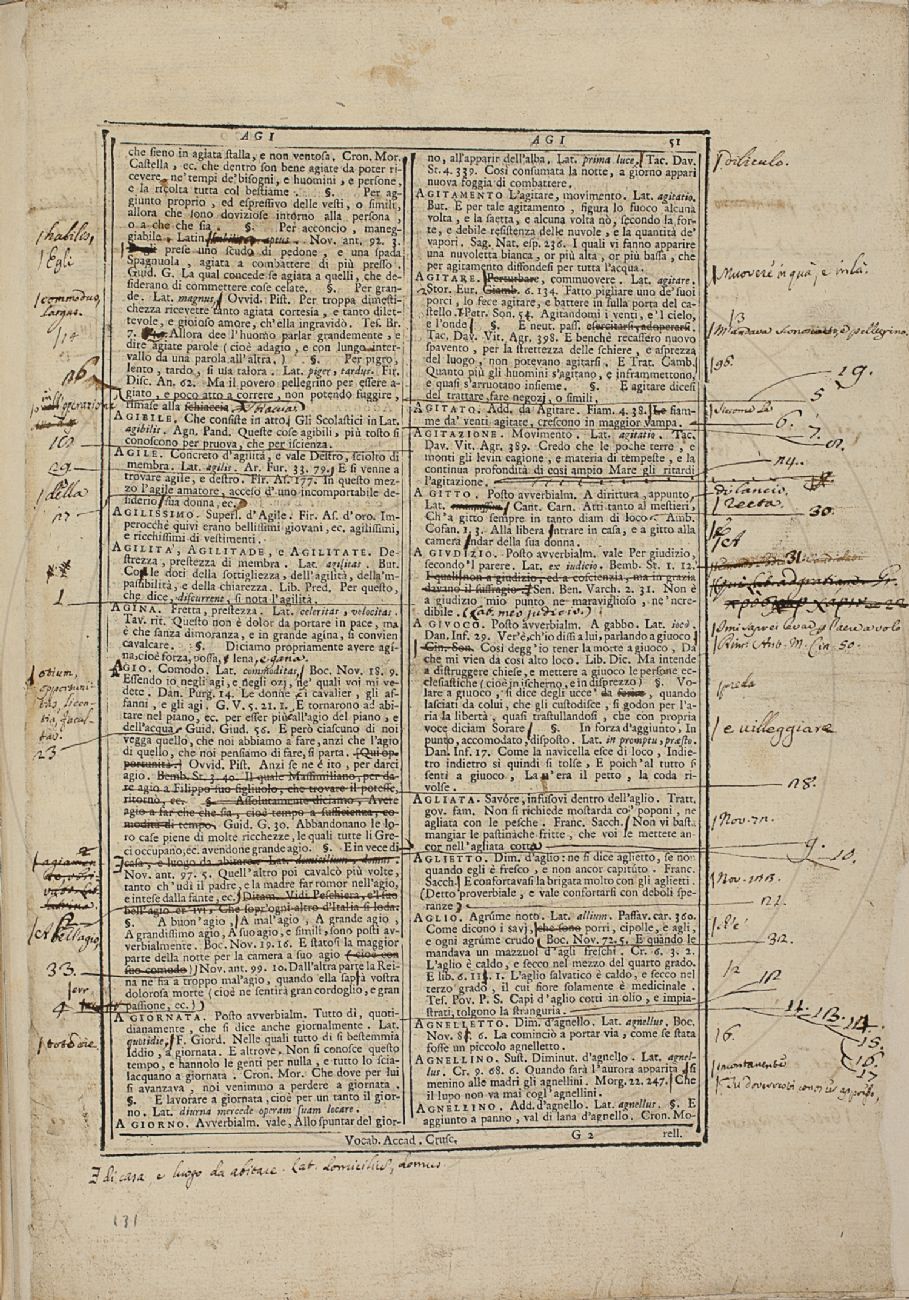 AGI
che sieno in agiata stalla, e non ventosa. Cron. Mor.
Castella, ec. che dentro son bene agiate da poter ri-
cevere, ne' tempi de' bisogni, e huomini, e persone,
e la ricolta tutta col bestiame. §. Per ag-
giunto proprio, ed espressivo delle vesti, o simili,
allora che sono doviziose intorno alla persona,
o a che che sia. §. Per acconcio, maneg-
giabile. Latin. aptus. Nov. ant. 92. 3.
prese uno scudo di pedone, e una spada
Spagnuola, agiata a combattere di più presso.
Guid. G. La qual concede se agiata a quelli, che de-
siderano di commettere cose celate. §. Per gran-
de. Lat. magnus, Ovvid. Pist. Per troppa dimesti-
chezza ricevette tanto agiata cortesia, e tanto dilet-
tevole, e gioioso amore, ch'ella ingravidò. Tes. Br.
7. Allora dee l'huomo parlar grandemente, e
dire agiate parole (cioè adagio, e con lungo inter-
vallo da una parola all'altra.) §. Per pigro,
lento, tardo, si usa talora. Lat. piger, tardus. Fir.
Disc. An. 62. Ma il povero pellegrino per essere a-
giato, e poco atto a correre, non potendo fuggire,
rimase alla schiaccia
AGIBILE. Che consiste in atto. Gli Scolastici in Lat.
agibilis. Agn. Pand. Queste cose agibili, più tosto si
conoscono per pruova, che per iscienza.
AGILE. Concreto d'agilità, e vale Destro, sciolto di
membra. Lat. agilis. Ar. Fur. 33. 79. E si venne a
trovare agile, e destro. Fir. As. 177. In questo mez-
zo l'agile amatore, acceso d'uno incomportabile de-
siderio sua donna, ec.
AGILISSIMO. Superl. d'Agile. Fir. As. d'oro. Im-
perocchè quivi erano bellissimi giovani, ec. agilissimi,
e ricchissimi di vestimenti.
AGILITA', AGILITADE, e AGILITATE. De-
strezza, prestezza di membra. Lat. agilitas. But.
Con le doti della sottigliezza, dell'agilità, della'm-
passibilità, e della chiarezza. Lib. Pred. Per questo,
che dice, discurrent, si nota l'agilità.
AGINA. Fretta, prestezza. Lat. celeritas, velocitas.
Tav. rit. Questo non è dolor da portare in pace, ma
è che sanza dimoranza, e in grande agina, si convien
cavalcare. §. Diciamo propriamente avere agi-
na, cioè forza, possa, lena,
AGIO. Comodo. Lat. commoditas, Boc. Nov. 18. 9.
Essendo io negli agi, e negli ozj, ne' quali voi mi ve-
dete. Dan. Purg. 14. Le donne i cavalier, gli af-
fanni, e gli agi. G. V. 5. 21. 1. E tornarono ad abi-
tare nel piano, ec. per esser più all'agio del piano, e
dell'acqua. Guid. Giud. 56. E però ciascuno di noi
vegga quello, che noi abbiamo a fare, anzi che l'agio
di quello, che noi pensiamo di fare, si parta. Qui op-
portunità. Ovvid. Pist. Anzi se ne è ito, per darci
agio. Bemb. St. 3. 40. Il quale Massimiliano, per da-
re agio a Filippo suo figliuolo, che trovare il potesse,
ritornò, ec. §. Assolutamente diciamo, Avere
agio a far che che sia, cioè tempo a sufficienza, co-
modità di tempo. Guid. G. 30. Abbandonano le lo-
ro case piene di molte ricchezze, le quali tutte li Gre-
ci occupano, ec. avendone grande agio. §. E in vece di
casa, è luogo da abitare. Lat. domicilium, domus.
Nov. ant. 97. 5. Quell'altro poi cavalcò più volte,
tanto ch'udì il padre, e la madre far romor nell'agio,
e intese dalla fante, ec. Ditam. Vidi Peschiera, e'l suo
bell'agio er ivi, Che sopr'ogni altro d'Italia si loda.
§. A buon'agio, A mal'agio, A grande agio,
A grandissimo agio, A suo agio, e simili, sono posti av-
verbialmente. Boc. Nov. 19. 16. E statosi la maggior
parte della notte per la camera a suo agio (cioè con
suo comodo) Nov. ant. 99. 10. Dall'altra parte la Rei-
na ne ha a troppo mal'agio, quando ella saprà vostra
dolorosa morte (cioè ne sentirà gran cordoglio, e gran
passione, ec.)
A GIORNATA. Posto avverbialm. Tutto dì, quoti-
dianamente, che si dice anche giornalmente. Lat.
quotidie, F. Giord. Nelle quali tutto dì si bestemmia
Iddio, a giornata. E altrove. Non si conosce questo
tempo, e hannolo le genti per nulla, e tutto lo scia-
lacquano a giornata. Cron. Mor. Che dove per lui
si avanzava, noi venimmo a perdere a giornata.
§. E lavorare a giornata, cioè per un tanto il gior-
no. Lat. diurna mercede operam suam locare.
A GIORNO. Avverbialm. vale, Allo spuntar del gior-
AGI 51
no, all'apparir dell'alba. Lat. prima luce, Tac. Dav.
St. 4. 339. Così consumata la notte, a giorno apparì
nuova foggia di combattere.
AGITAMENTO. L'agitare, movimento. Lat. agitatio.
But. E per tale agitamento, figura lo fuoco alcuna
volta, e la saetta, e alcuna volta nò, secondo la for-
te, e debile resistenza delle nuvole, e la quantità de'
vapori. Sag. Nat. esp. 236. I quali vi fanno apparire
una nuvoletta bianca, or più alta, or più bassa, che
per agitamento diffondesi per tutta l'acqua.
AGITARE. Perturbare, commuovere. Lat. agitare.
Stor. Eur. Giamb. 6. 134. Fatto pigliare uno de' suoi
porci, lo fece agitare, e battere in sulla porta del ca-
stello. Petr. Son. 54. Agitandomi i venti, e'l cielo,
e l'onde §. E neut. pass. esercitarsi, adoperarsi.
Tac. Dav. Vit. Agr. 398. E benchè recassero nuovo
spavento, per la strettezza delle schiere, e asprezza
del luogo, non potevano agitarsi. E Trat. Camb.
Quanto più gli huomini s'agitano, e inframmettono,
e quasi s'arruotano insieme. §. E agitare dicesi
del trattare, fare negozj, o simili,
AGITATO. Add. da Agitare. Fiam. 4. 38. Le fiam-
me da' venti agitate, crescono in maggior vampa.
AGITAZIONE. Movimento. Lat. agitatio. Tac.
Dav. Vit. Agr. 389. Credo che le poche terre, e
monti gli levin cagione, e materia di tempeste, e la
continua profondità di così ampio Mare gli ritardi
l'agitazione.
A GITTO. Posto avverbialm. A dirittura, appunto,
Lat. Cant. Carn. Atti tanto al mestieri,
Ch'a gitto sempre in tanto diam di loco. Amb.
Cofan. 1. 3. Alla libera entrare in casa, e a gitto alla
camera andar della sua donna.
A GIUDIZIO. Posto avverbialm. vale Per giudizio,
secondo'l parere. Lat. ex iudicio. Bemb. St. 1. 12.
I quali non a giudizio, ed a coscienzia, ma in grazia
davano il suffragio. Sen. Ben. Varch. 2. 31. Non è
a giudizio mio punto nè maraviglioso, nè 'ncre-
dibile. (Lat. meo judicio)
A GIUOCO. Posto avverbialm. A gabbo. Lat. iocò.
Dan. Inf. 29. Ver'è, ch'io dissi a lui, parlando a giuoco
Cin. Son. Così degg'io tener la morte a giuoco, Da
che mi vien da così alto loco. Lib. Dic. Ma intende
a distruggere chiese, e mettere a giuoco le persone ec-
clesiastiche (cioè in ischerno, e in disprezzo) §. Vo-
lare a giuoco, si dice degli ucce' da ferire, quando
lasciati da colui, che gli custodisce, si godon per l'a-
ria la libertà, quasi trastullandosi, che con propria
voce diciam Sorare §. In forza d'aggiunto, In
punto, accomodato, disposto. Lat. in promptu, præsto.
Dan. Inf. 17. Come la navicella esce di loco, Indie-
tro indietro si quindi si tolse, E poich'al tutto si
sentì a giuoco, La v'era il petto, la coda ri-
volse.
AGLIATA. Savóre, infusovi dentro dell'aglio. Tratt.
gov. fam. Non si richiede mostarda co' poponi, ne
agliata con le pesche. Franc. Sacch. Non vi basta
mangiar le pastinache fritte, che voi le mettete an-
cor nell'agliata cotta
AGLIETTO. Dim. d'aglio: ne si dice aglietto, se non
quando egli è fresco, e non ancor capituto. Franc.
Sacch. E confortavasi la brigata molto con gli aglietti.
(Detto proverbiale, e vale confortarsi con deboli spe-
ranze)
AGLIO. Agrúme noto. Lat. allium. Passav. car. 360.
Come dicono i savj, che sono porri, cipolle, e agli,
e ogni agrúme crudo Boc. Nov. 72. 5. E quando le
mandava un mazzuol d'agli freschi. Cr. 6. 3. 2.
L'aglio è caldo, e secco nel mezzo del quarto grado.
E lib. 6. 1. L'aglio salvatico è caldo, e secco nel
terzo grado, il cui fiore solamente è medicinale.
Tes. Pov. P. S. Capi d'aglio cotti in olio, e impia-
strati, tolgono la stranguria.
AGNELLETTO. Dim. d'agnello. Lat. agnellus, Boc.
Nov. 8. 6. La cominciò a portar via, come se stata
fosse un piccolo agnelletto.
AGNELLINO. Sust. Diminut. d'agnello. Lat. agnel-
lus. Cr. 9. 68. 6. Quando sarà l'aurora apparita si
menino alle madri gli agnellini. Morg. 22. 247. Che
il lupo non va mai cogl'agnellini.
AGNELLINO. Add. d'agnello. Lat. agnellus. §. E
aggiunto a panno, val di lana d'agnello. Cron. Mo-
Vocab. Accad. Crusc. G 2 rell.
habilis,
Egli
commodus
largus.
14
26
102
29
della
27
1
otium,
opportuni
tas, licen-
tia, facul-
tas.
23
bell'agio
33.
4
diluculo.
Muovere in quà, e in là.
13
98.
19.
5
6.
7.
Secondo la
di lancio.
recta
30.
31
preda
e villeggiare
28.
9.
10.
32.
12
11. 13. 14
15.
16
17
6.
di casa, e luogo da abitare. Lat. domicilium, domus.
131